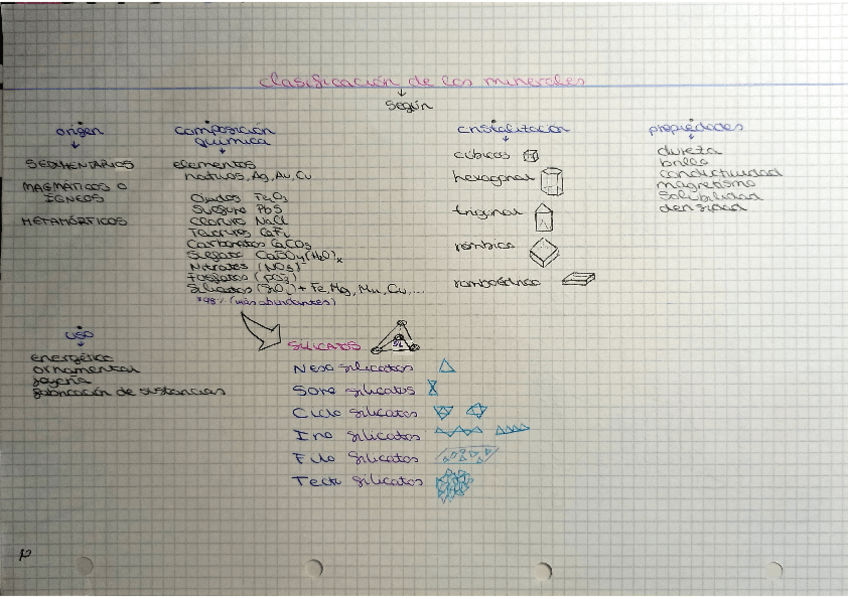 clasificación de los minerales
según
origen
SEDIMENTARIOS
MAGMÁTICOS O
ÍGNEOS
METAMÓRFICOS
composición
química
elementos
nativos, Ag, Au, Cu
Óxidos Fe₂O₃
Sulfuro PbS
Cloruro NaCl
CaF₂
Carbonatos CaCO₃
Sulfato CaSO₄(H₂O)ₓ
Nitratos (NO₃)
Fosfatos
Silicatos + Fe, Mg, Mn, Cu, ...
(más abundantes)
cristalización
cúbicos
hexagonal
trigonal
rómbico
propiedades
dureza
brillo
conductividad
magnetismo
solubilidad
densidad
uso
energético
ornamental
joyería
fabricación de sustancias
SILICATOS
Neso silicatos
Soro silicatos
Ciclo silicatos
Ino silicatos
Filo silicatos
Tecto silicatos